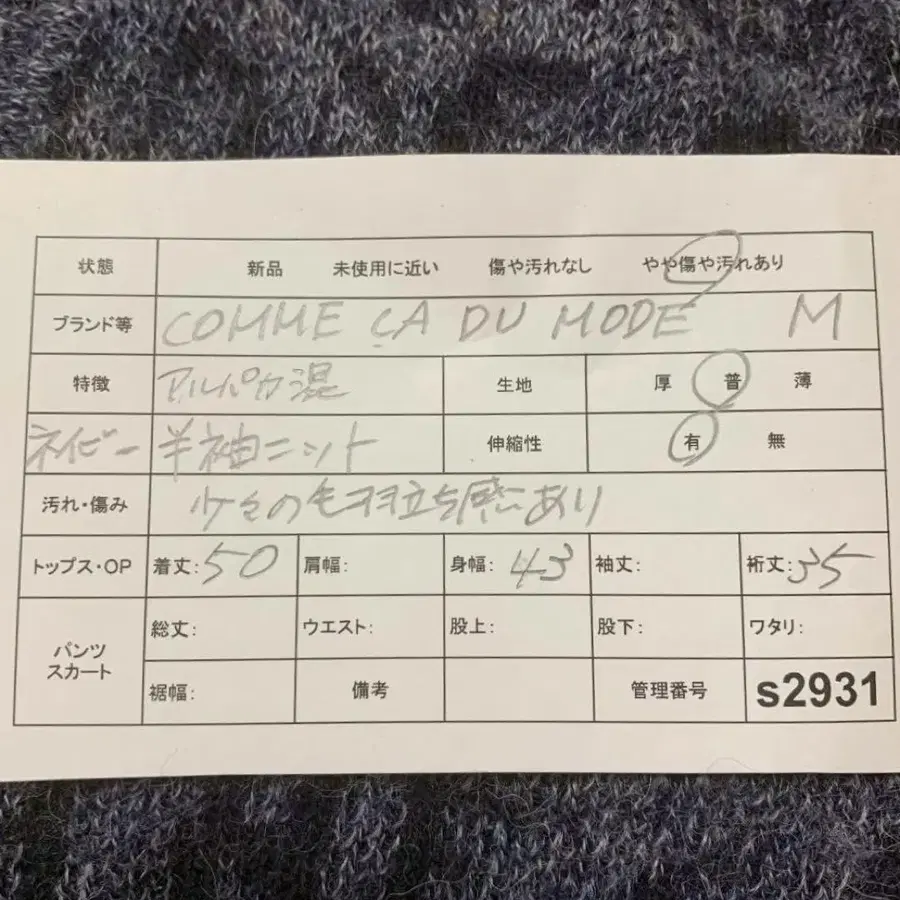 状態 新品 未使用に近い 傷や汚れなし やや傷や汚れあり
ブランド等 COMME ÇA DU MODE M
特徴 アルパカ混 生地 厚 普 薄
ネイビー 半袖ニット 伸縮性 有 無
汚れ・傷み 少々の毛羽立ち感あり
トップス・OP 着丈:50 肩幅: 身幅:43 袖丈: 裄丈:35
パンツ スカート 総丈: ウエスト: 股上: 股下: ワタリ:
裾幅: 備考 管理番号 s2931